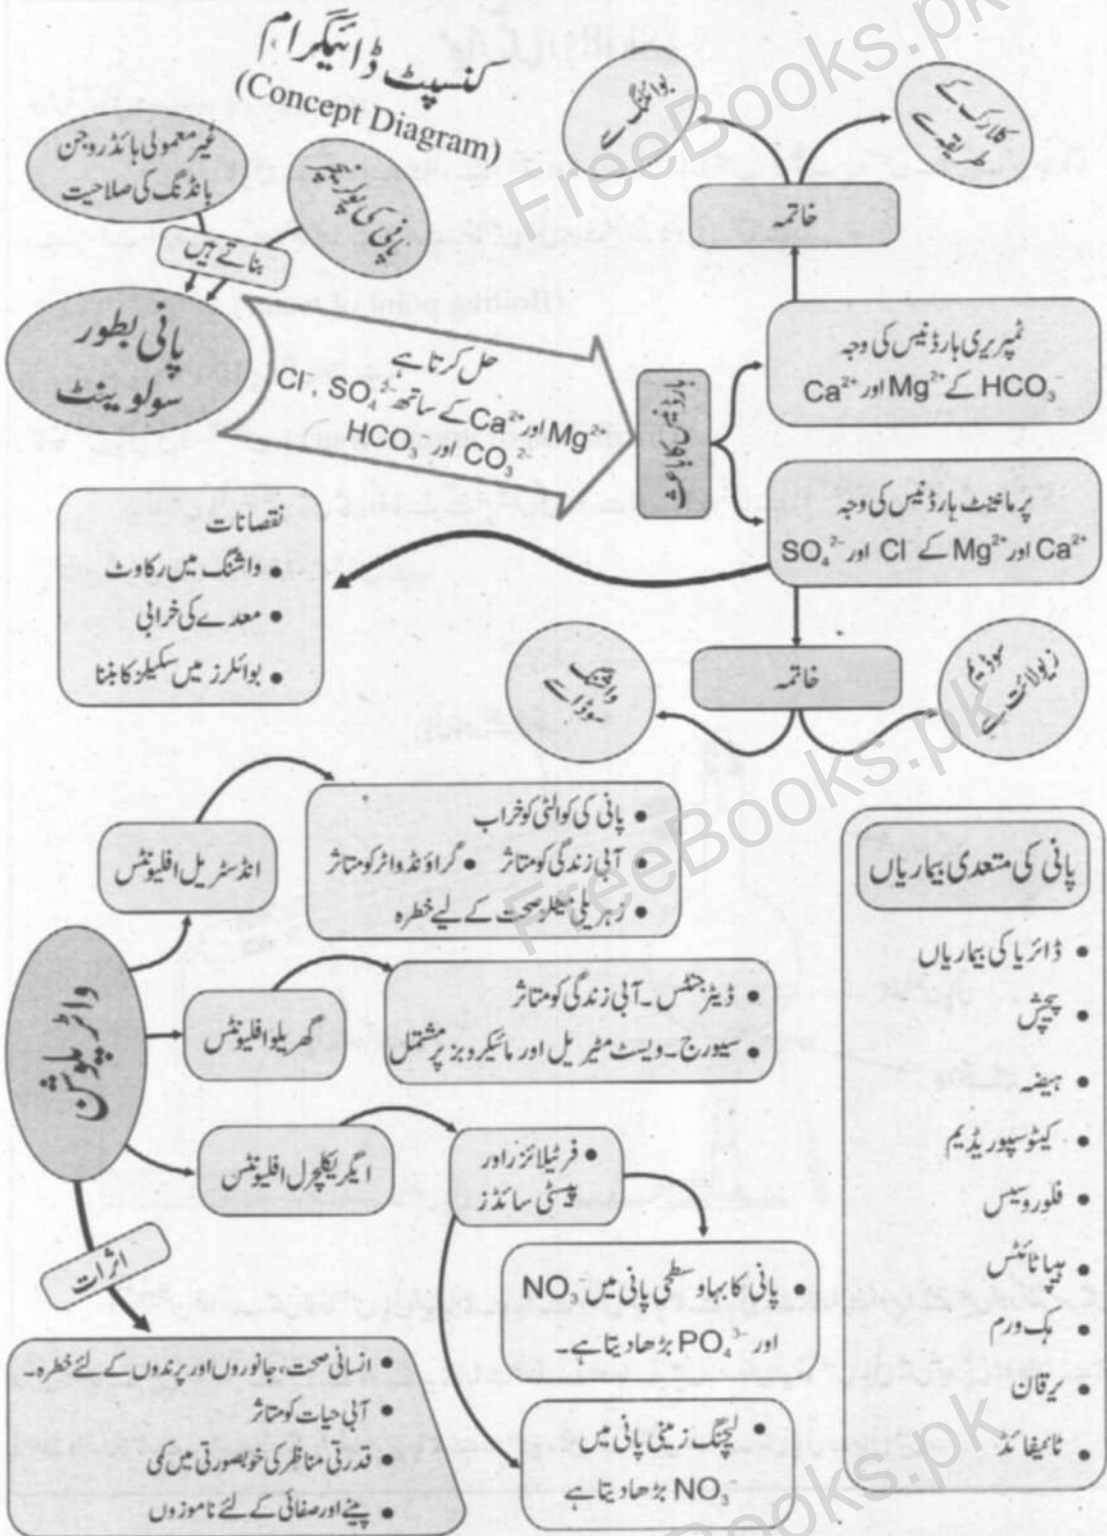 کنسپٹ ڈائیگرام
(Concept Diagram)
غیر معمولی ہائڈروجن
بانڈنگ کی صلاحیت
پانی کی پولر نیچر
بناتے ہیں
پانی بطور
سولوینٹ
حل کرتا ہے
Mg²⁺ اور Ca²⁺ کے ساتھ Cl⁻, SO₄²⁻
CO₃²⁻ اور HCO₃⁻
ہارڈنیس کا باعث
بوائلنگ سے
کلارک کے
طریقہ سے
خاتمہ
ٹمپریری ہارڈنیس کی وجہ
HCO₃⁻ کے Mg²⁺ اور Ca²⁺
پرماننٹ ہارڈنیس کی وجہ
Ca²⁺ اور Mg²⁺ کے Cl⁻ اور SO₄²⁻
خاتمہ
واشنگ
سوڈا سے
سوڈیم
زیولائٹ سے
نقصانات
• واشنگ میں رکاوٹ
• معدے کی خرابی
• بوائلرز میں سکیلز کا بننا
واٹر پلوشن
انڈسٹریل افلیونٹس
• پانی کی کوالٹی کو خراب
• آبی زندگی کو متاثر • گراؤنڈ واٹر کو متاثر
• زہریلی میٹلز صحت کے لیے خطرہ
گھریلو افلیونٹس
• ڈیٹرجنٹس ۔ آبی زندگی کو متاثر
• سیورج ۔ ویسٹ مٹیریل اور مائیکروبز پر مشتمل
ایگریکلچرل افلیونٹس
• فرٹیلائزر اور
پیسٹی سائڈز
• پانی کا بہاو سطحی پانی میں NO₃⁻
اور PO₄³⁻ بڑھا دیتا ہے۔
• لیچنگ زمینی پانی میں
NO₃⁻ بڑھا دیتا ہے
اثرات
• انسانی صحت، جانوروں اور پرندوں کے لئے خطرہ۔
• آبی حیات کو متاثر
• قدرتی مناظر کی خوبصورتی میں کمی
• پینے اور صفائی کے لئے ناموزوں
پانی کی متعدی بیماریاں
• ڈائریا کی بیماریاں
• پیچش
• ہیضہ
• کپٹوسپوریڈیم
• فلوروسیس
• ہیپاٹائٹس
• ہک ورم
• یرقان
• ٹائیفائڈ
FreeBooks.pk
FreeBooks.pk
Books.pk